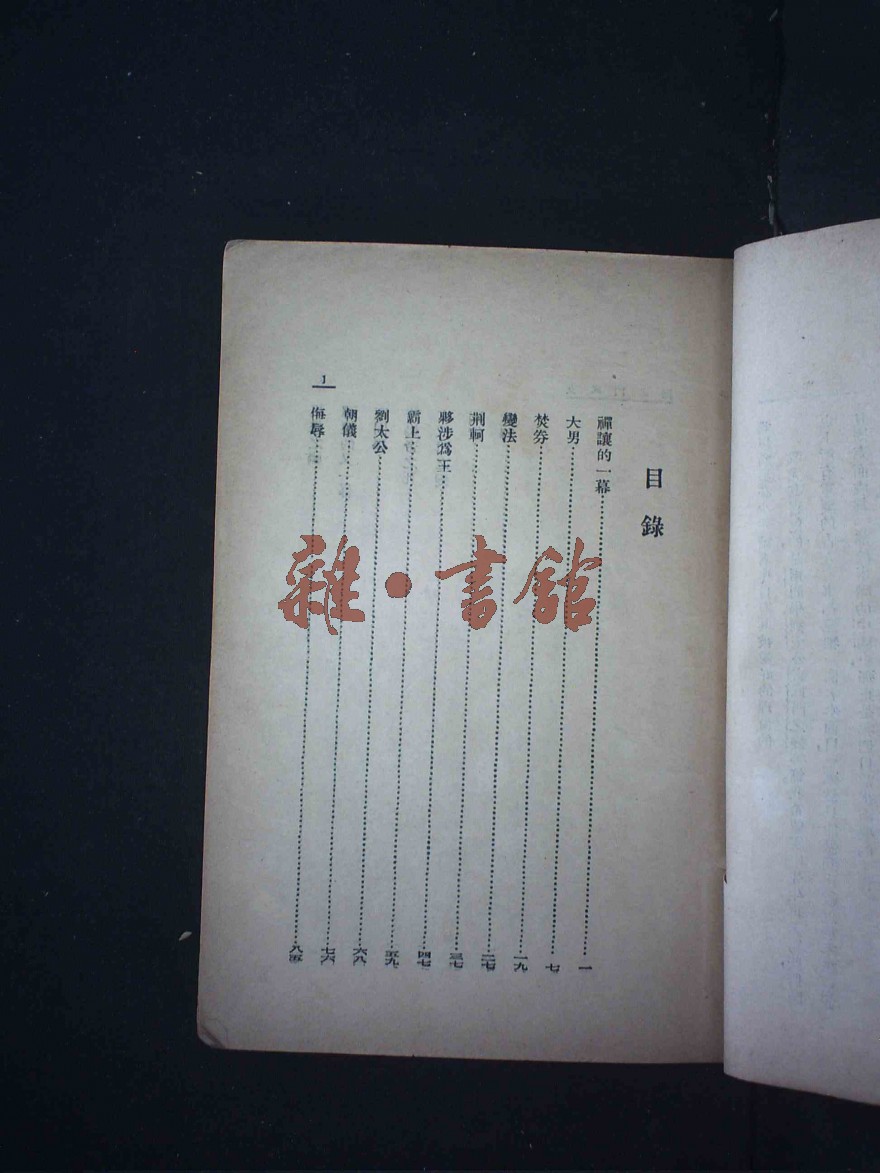 目錄
禪讓的一幕……一
大男……七
焚券……一九
變法……二七
荆軻……三七
夥涉爲王……四七
霸上……五九
劉太公……六八
朝儀……七六
侮辱……八五
1
雜·書館